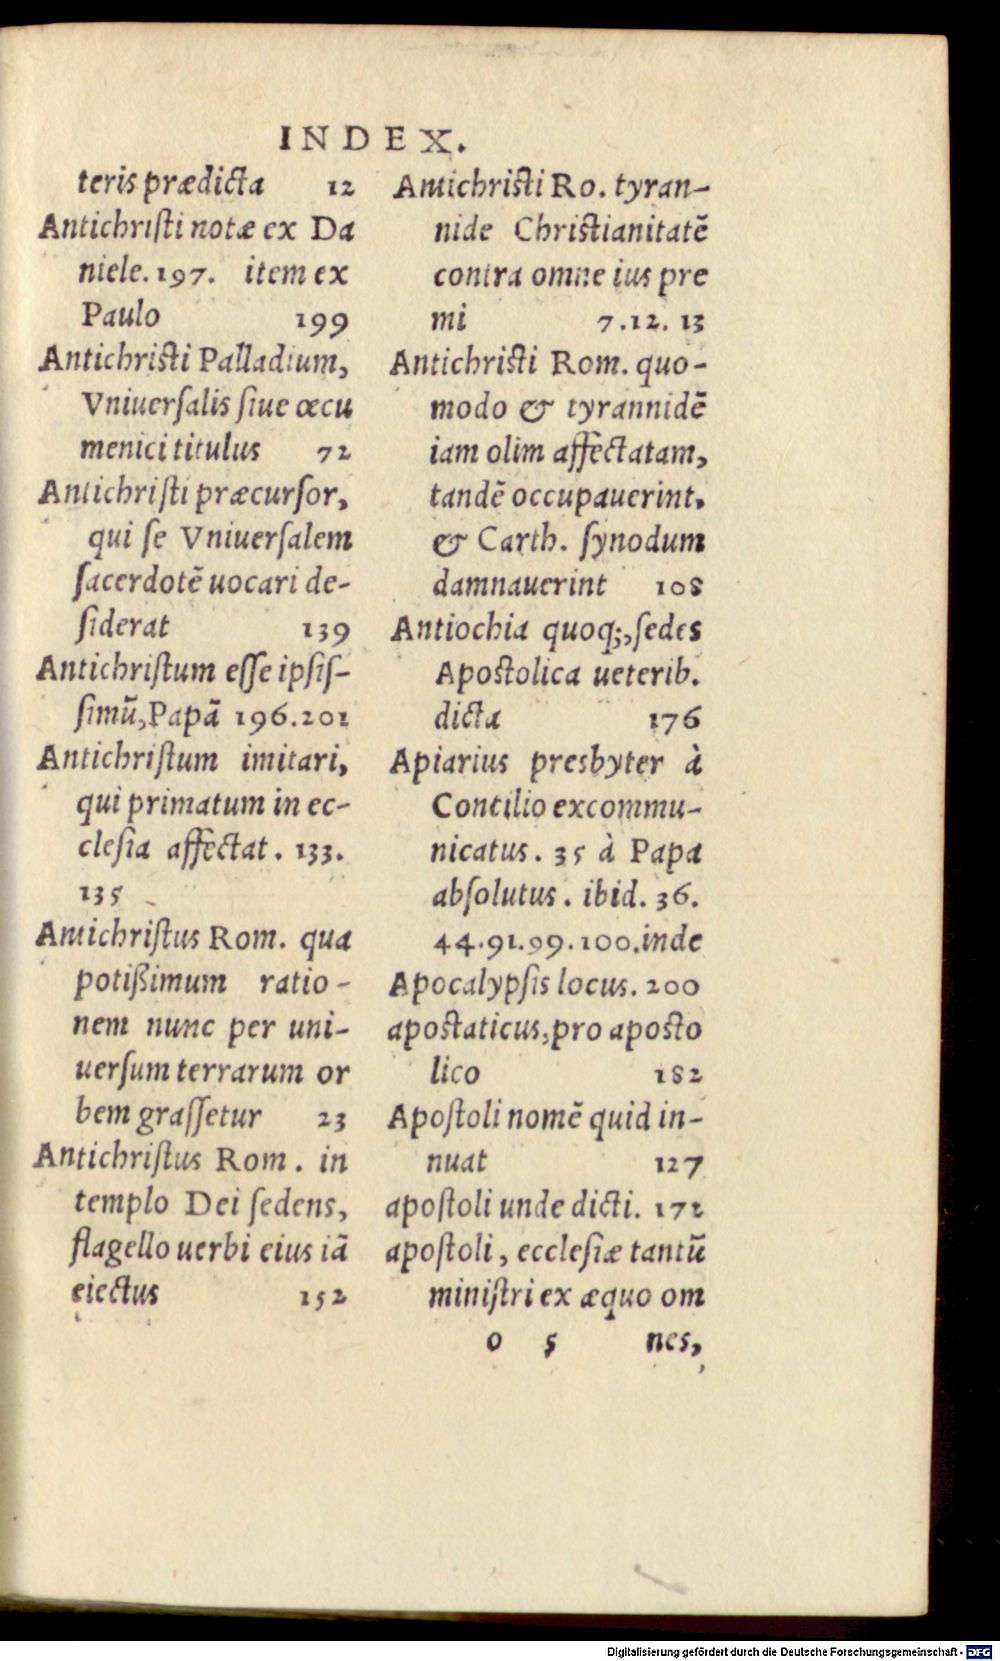 INDEX.
teris prædicta 12
Antichriſti notæ ex Da
niele. 197. item ex
Paulo 199
Antichriſti Palladium,
Vniuerſalis ſiue œcu
menici titulus 72
Antichriſti præcurſor,
qui ſe Vniuerſalem
ſacerdotē uocari de-
ſiderat 139
Antichriſtum eſſe ipſiſ-
ſimū, Papā 196.201
Antichriſtum imitari,
qui primatum in ec-
cleſia affectat. 133.
135
Antichriſtus Rom. qua
potißimum ratio-
nem nunc per uni-
uerſum terrarum or
bem graſſetur 23
Antichriſtus Rom. in
templo Dei ſedens,
flagello uerbi eius iā
eiectus 152
Antichriſti Ro. tyran-
nide Chriſtianitatē
contra omne ius pre
mi 7.12.13
Antichriſti Rom. quo-
modo & tyrannidē
iam olim affectatam,
tandē occupauerint,
& Carth. ſynodum
damnauerint 108
Antiochia quoq;, ſedes
Apoſtolica ueterib.
dicta 176
Apiarius presbyter à
Concilio excommu-
nicatus. 35 à Papa
abſolutus. ibid. 36.
44.91.99.100.inde
Apocalypſis locus. 200
apoſtaticus, pro apoſto
lico 182
Apoſtoli nomē quid in-
nuat 127
apoſtoli unde dicti. 172
apoſtoli, eccleſiæ tantū
miniſtri ex æquo om
o 5 nes,
Digitalisierung gefördert durch die Deutsche Forschungsgemeinschaft - DFG